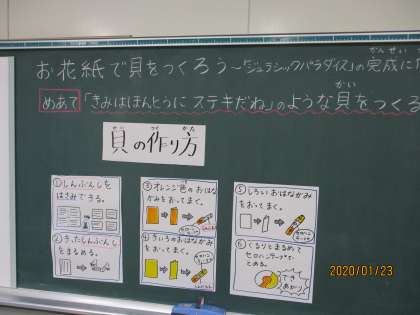 お花紙で貝をつくろう～「ジュラシックパラダイス」の完成に
かんせい
めあて「きみはほんとうにステキだね」のような貝をつくる
かい
貝の作り方
かい つく かた
①しんぶんしを
はさみできる。
②きったしんぶんし
をまるめる。
③オレンジ色のおはな
がみをおってまく。
④きいろのおはながみ
をおってまく。
⑤しろいおはながみ
をおってまく。
⑥くるりとまるめて
セロハンテープで
とめる。
でき
あがり
2020/01/23